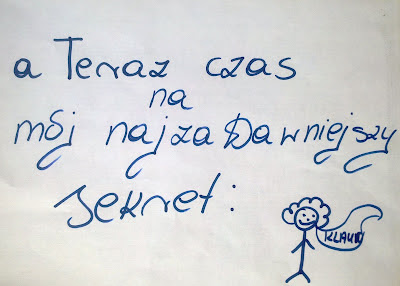 a Teraz czas
na
mój najzaDawniejszy
sekret: